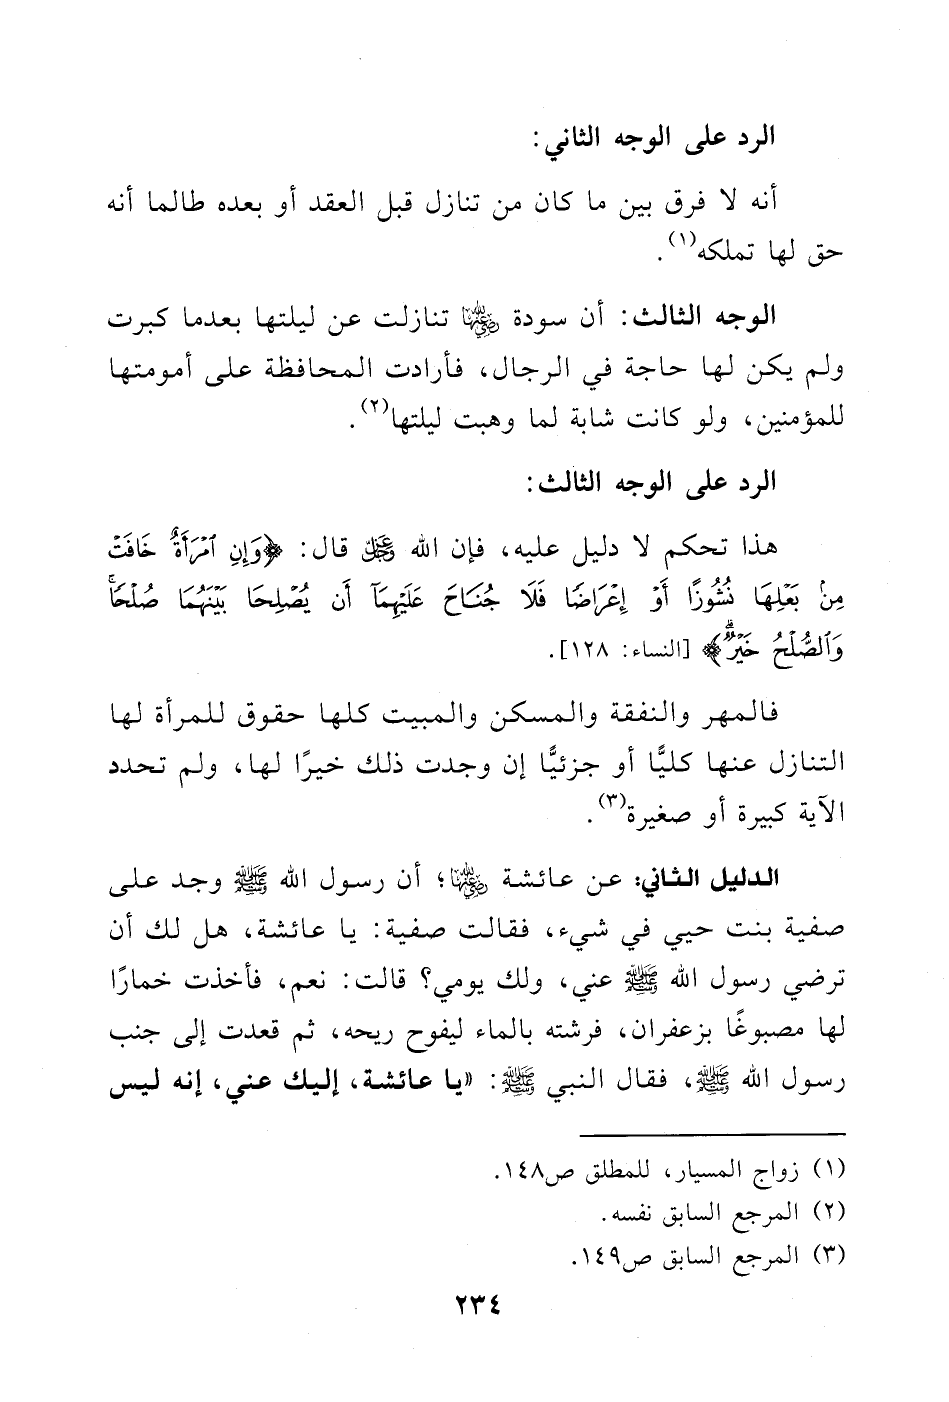 الرد على الوجه الثاني:
أنه لا فرق بين ما كان من تنازل قبل العقد أو بعده طالما أنه
حق لها تملكه(١).
الوجه الثالث: أن سودة رضي الله عنها تنازلت عن ليلتها بعدما كبرت
ولم يكن لها حاجة في الرجال، فأرادت المحافظة على أمومتها
للمؤمنين، ولو كانت شابة لما وهبت ليلتها(٢).
الرد على الوجه الثالث:
هذا تحكم لا دليل عليه، فإن الله عز وجل قال: ﴿وَإِنِ ٱمۡرَأَةٌ خَافَتۡ
مِنۢ بَعۡلِهَا نُشُوزًا أَوۡ إِعۡرَاضٗا فَلَا جُنَاحَ عَلَيۡهِمَآ أَن يُصۡلِحَا بَيۡنَهُمَا صُلۡحٗاۚ
وَٱلصُّلۡحُ خَيۡرٞۗ﴾ [النساء: ١٢٨].
فالمهر والنفقة والمسكن والمبيت كلها حقوق للمرأة لها
التنازل عنها كليًّا أو جزئيًّا إن وجدت ذلك خيرًا لها، ولم تحدد
الآية كبيرة أو صغيرة(٣).
الدليل الثاني: عن عائشة رضي الله عنها؛ أن رسول الله ﷺ وجد على
صفية بنت حيي في شيء، فقالت صفية: يا عائشة، هل لك أن
ترضي رسول الله ﷺ عني، ولك يومي؟ قالت: نعم، فأخذت خمارًا
لها مصبوغًا بزعفران، فرشته بالماء ليفوح ريحه، ثم قعدت إلى جنب
رسول الله ﷺ، فقال النبي ﷺ: «يا عائشة، إليك عني، إنه ليس
(١) زواج المسيار، للمطلق ص١٤٨.
(٢) المرجع السابق نفسه.
(٣) المرجع السابق ص١٤٩.
٢٣٤